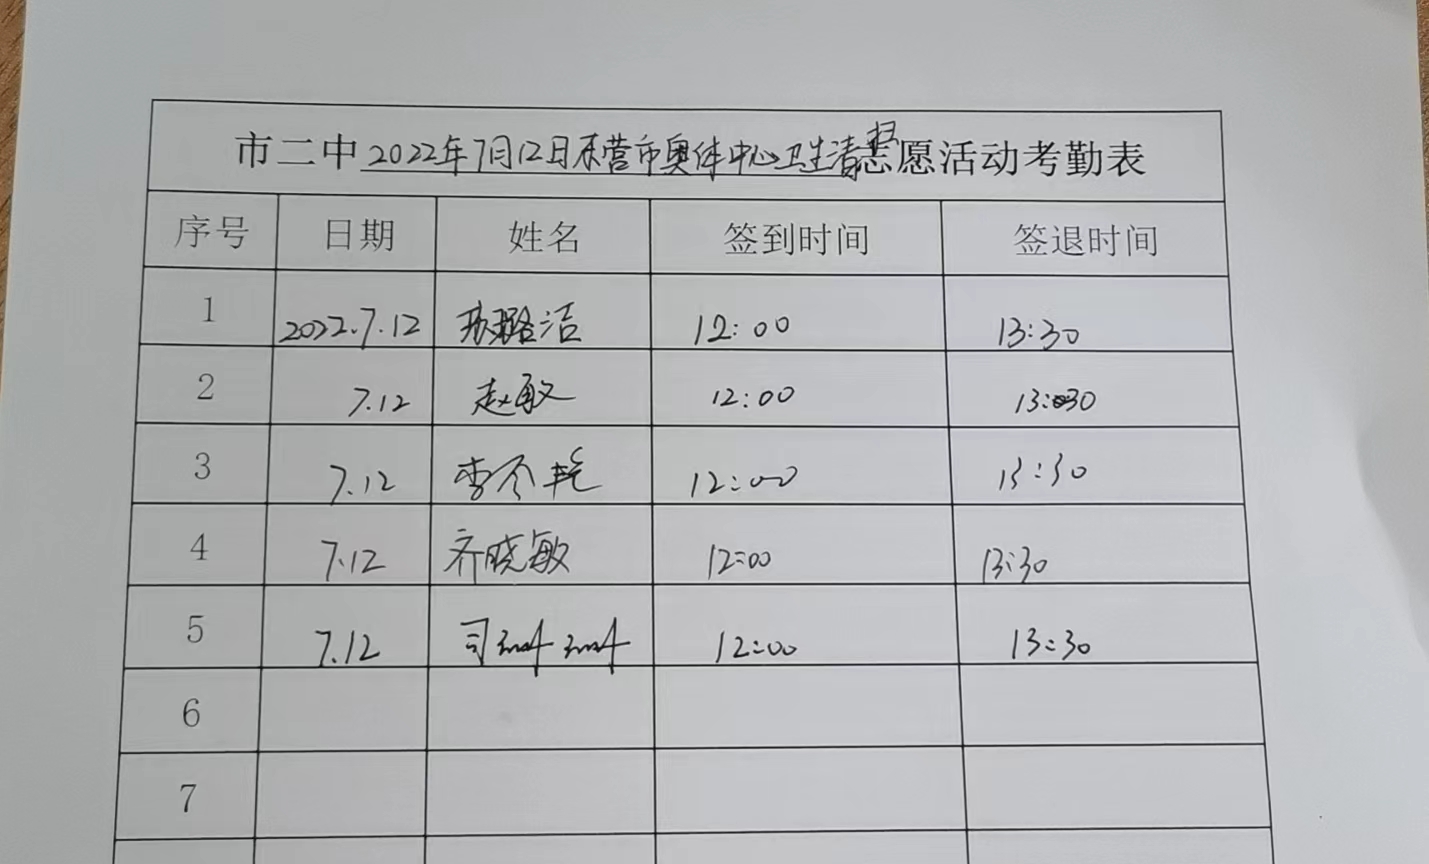 市二中2022年7月12日东营市奥体中心卫生清扫志愿活动考勤表
序号 日期 姓名 签到时间 签退时间
1 2022.7.12 璐洁 12:00 13:30
2 7.12 赵敏 12:00 13:30
3 7.12 李冬艳 12:00 13:30
4 7.12 齐晓敏 12:00 13:30
5 7.12 司珊珊 12:00 13:30
6
7